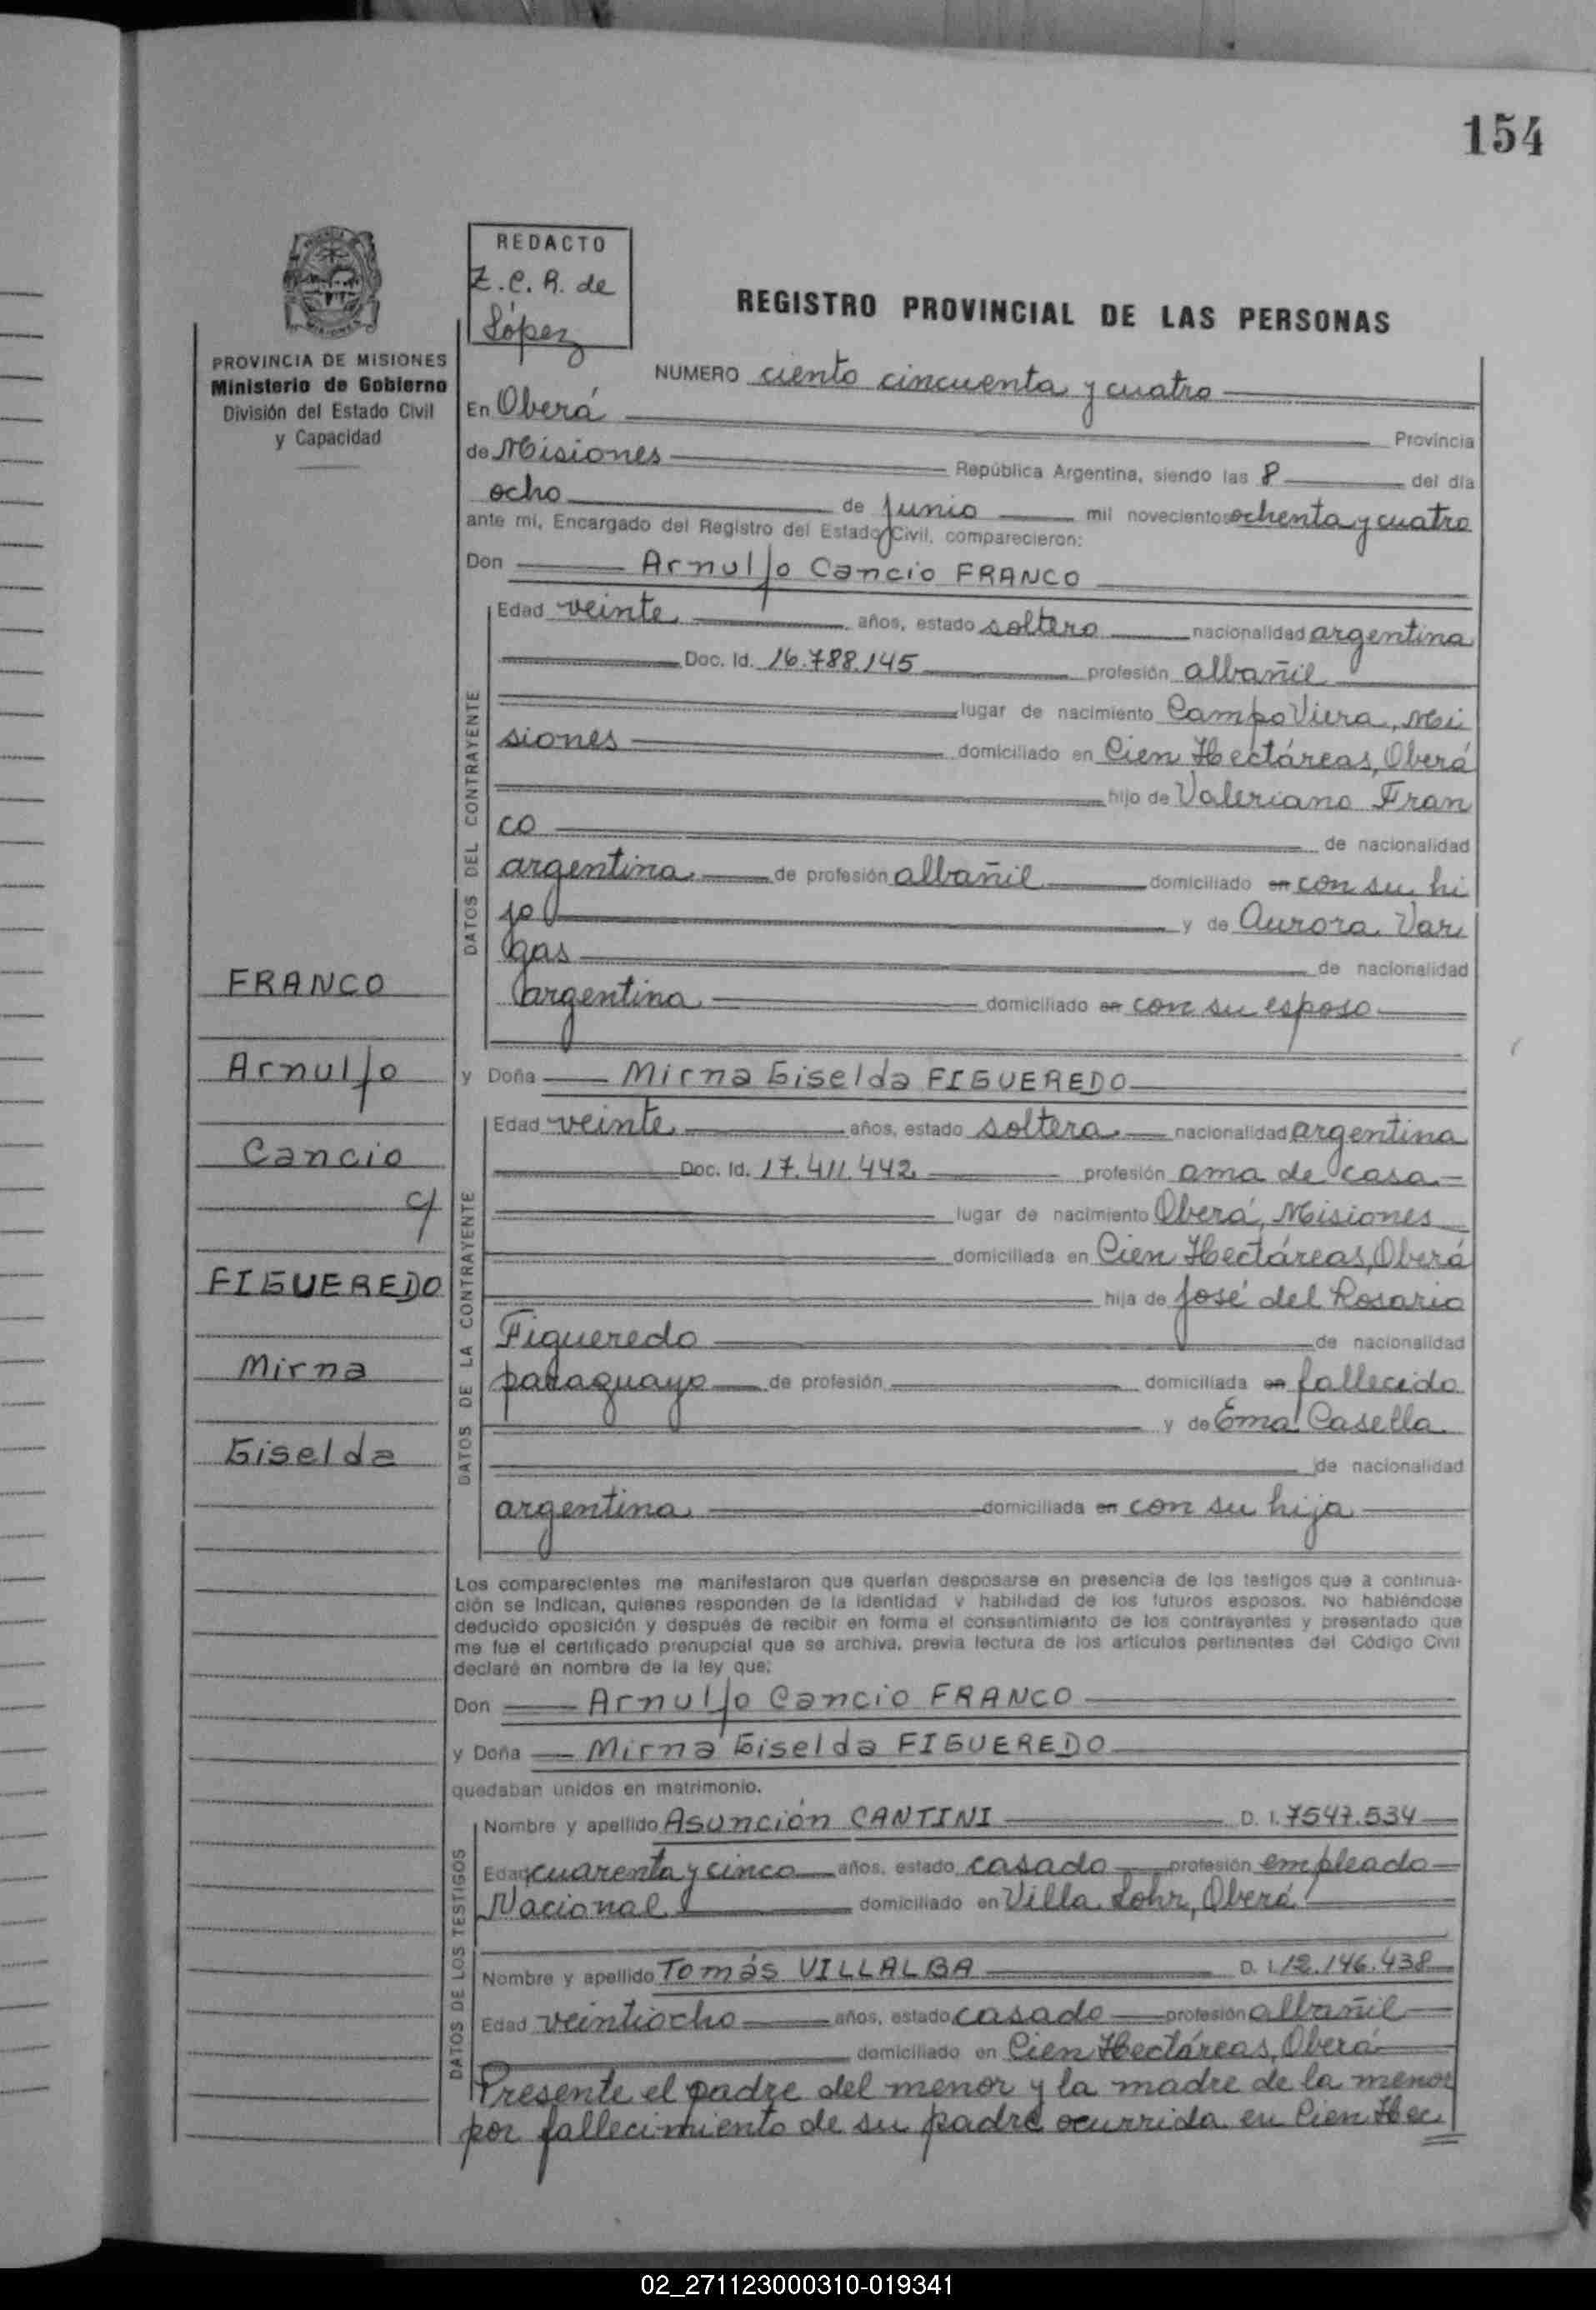 154
REDACTO
Z.C.R. de
López
REGISTRO PROVINCIAL DE LAS PERSONAS
PROVINCIA DE MISIONES
Ministerio de Gobierno
División del Estado Civil
y Capacidad
NUMERO ciento cincuenta y cuatro
En Oberá Provincia
de Misiones República Argentina, siendo las 8 del día
ocho de junio mil novecientos ochenta y cuatro
ante mi, Encargado del Registro del Estado Civil, comparecieron:
Don Arnulfo Cancio FRANCO
DATOS DEL CONTRAYENTE
Edad veinte años, estado soltero nacionalidad argentina
Doc. Id. 16.788.145 profesión albañil
lugar de nacimiento Campo Viera, Mi
siones domiciliado en Cien Hectáreas, Oberá
hijo de Valeriano Fran
co de nacionalidad
argentina de profesión albañil domiciliado en con su hi
jo y de Aurora Var
gas de nacionalidad
argentina domiciliado en con su esposo
y Doña Mirna Giselda FIGUEREDO
DATOS DE LA CONTRAYENTE
Edad veinte años, estado soltera nacionalidad argentina
Doc. Id. 17.411.442 profesión ama de casa
lugar de nacimiento Oberá, Misiones
domiciliada en Cien Hectáreas, Oberá
hija de José del Rosario
Figueredo de nacionalidad
paraguayo de profesión domiciliada en fallecido
y de Ema Casella
de nacionalidad
argentina domiciliada en con su hija
FRANCO
Arnulfo
Cancio
c/
FIGUEREDO
Mirna
Giselda
Los comparecientes me manifestaron que querían desposarse en presencia de los testigos que a continua-
ción se indican, quienes responden de la identidad y habilidad de los futuros esposos. No habiéndose
deducido oposición y después de recibir en forma el consentimiento de los contrayentes y presentado que
me fue el certificado prenupcial que se archiva, previa lectura de los artículos pertinentes del Código Civil
declaré en nombre de la ley que:
Don Arnulfo Cancio FRANCO
y Doña Mirna Giselda FIGUEREDO
quedaban unidos en matrimonio.
DATOS DE LOS TESTIGOS
Nombre y apellido Asunción CANTINI D. I. 7547.534
Edad cuarenta y cinco años, estado casado profesión empleado
Nacional domiciliado en Villa Lohr, Oberá
Nombre y apellido Tomás VILLALBA D. I. 12.146.438
Edad veintiocho años, estado casado profesión albañil
domiciliado en Cien Hectáreas, Oberá
Presente el padre del menor y la madre de la menor
por fallecimiento de su padre ocurrida en Cien Hec
02_271123000310-019341